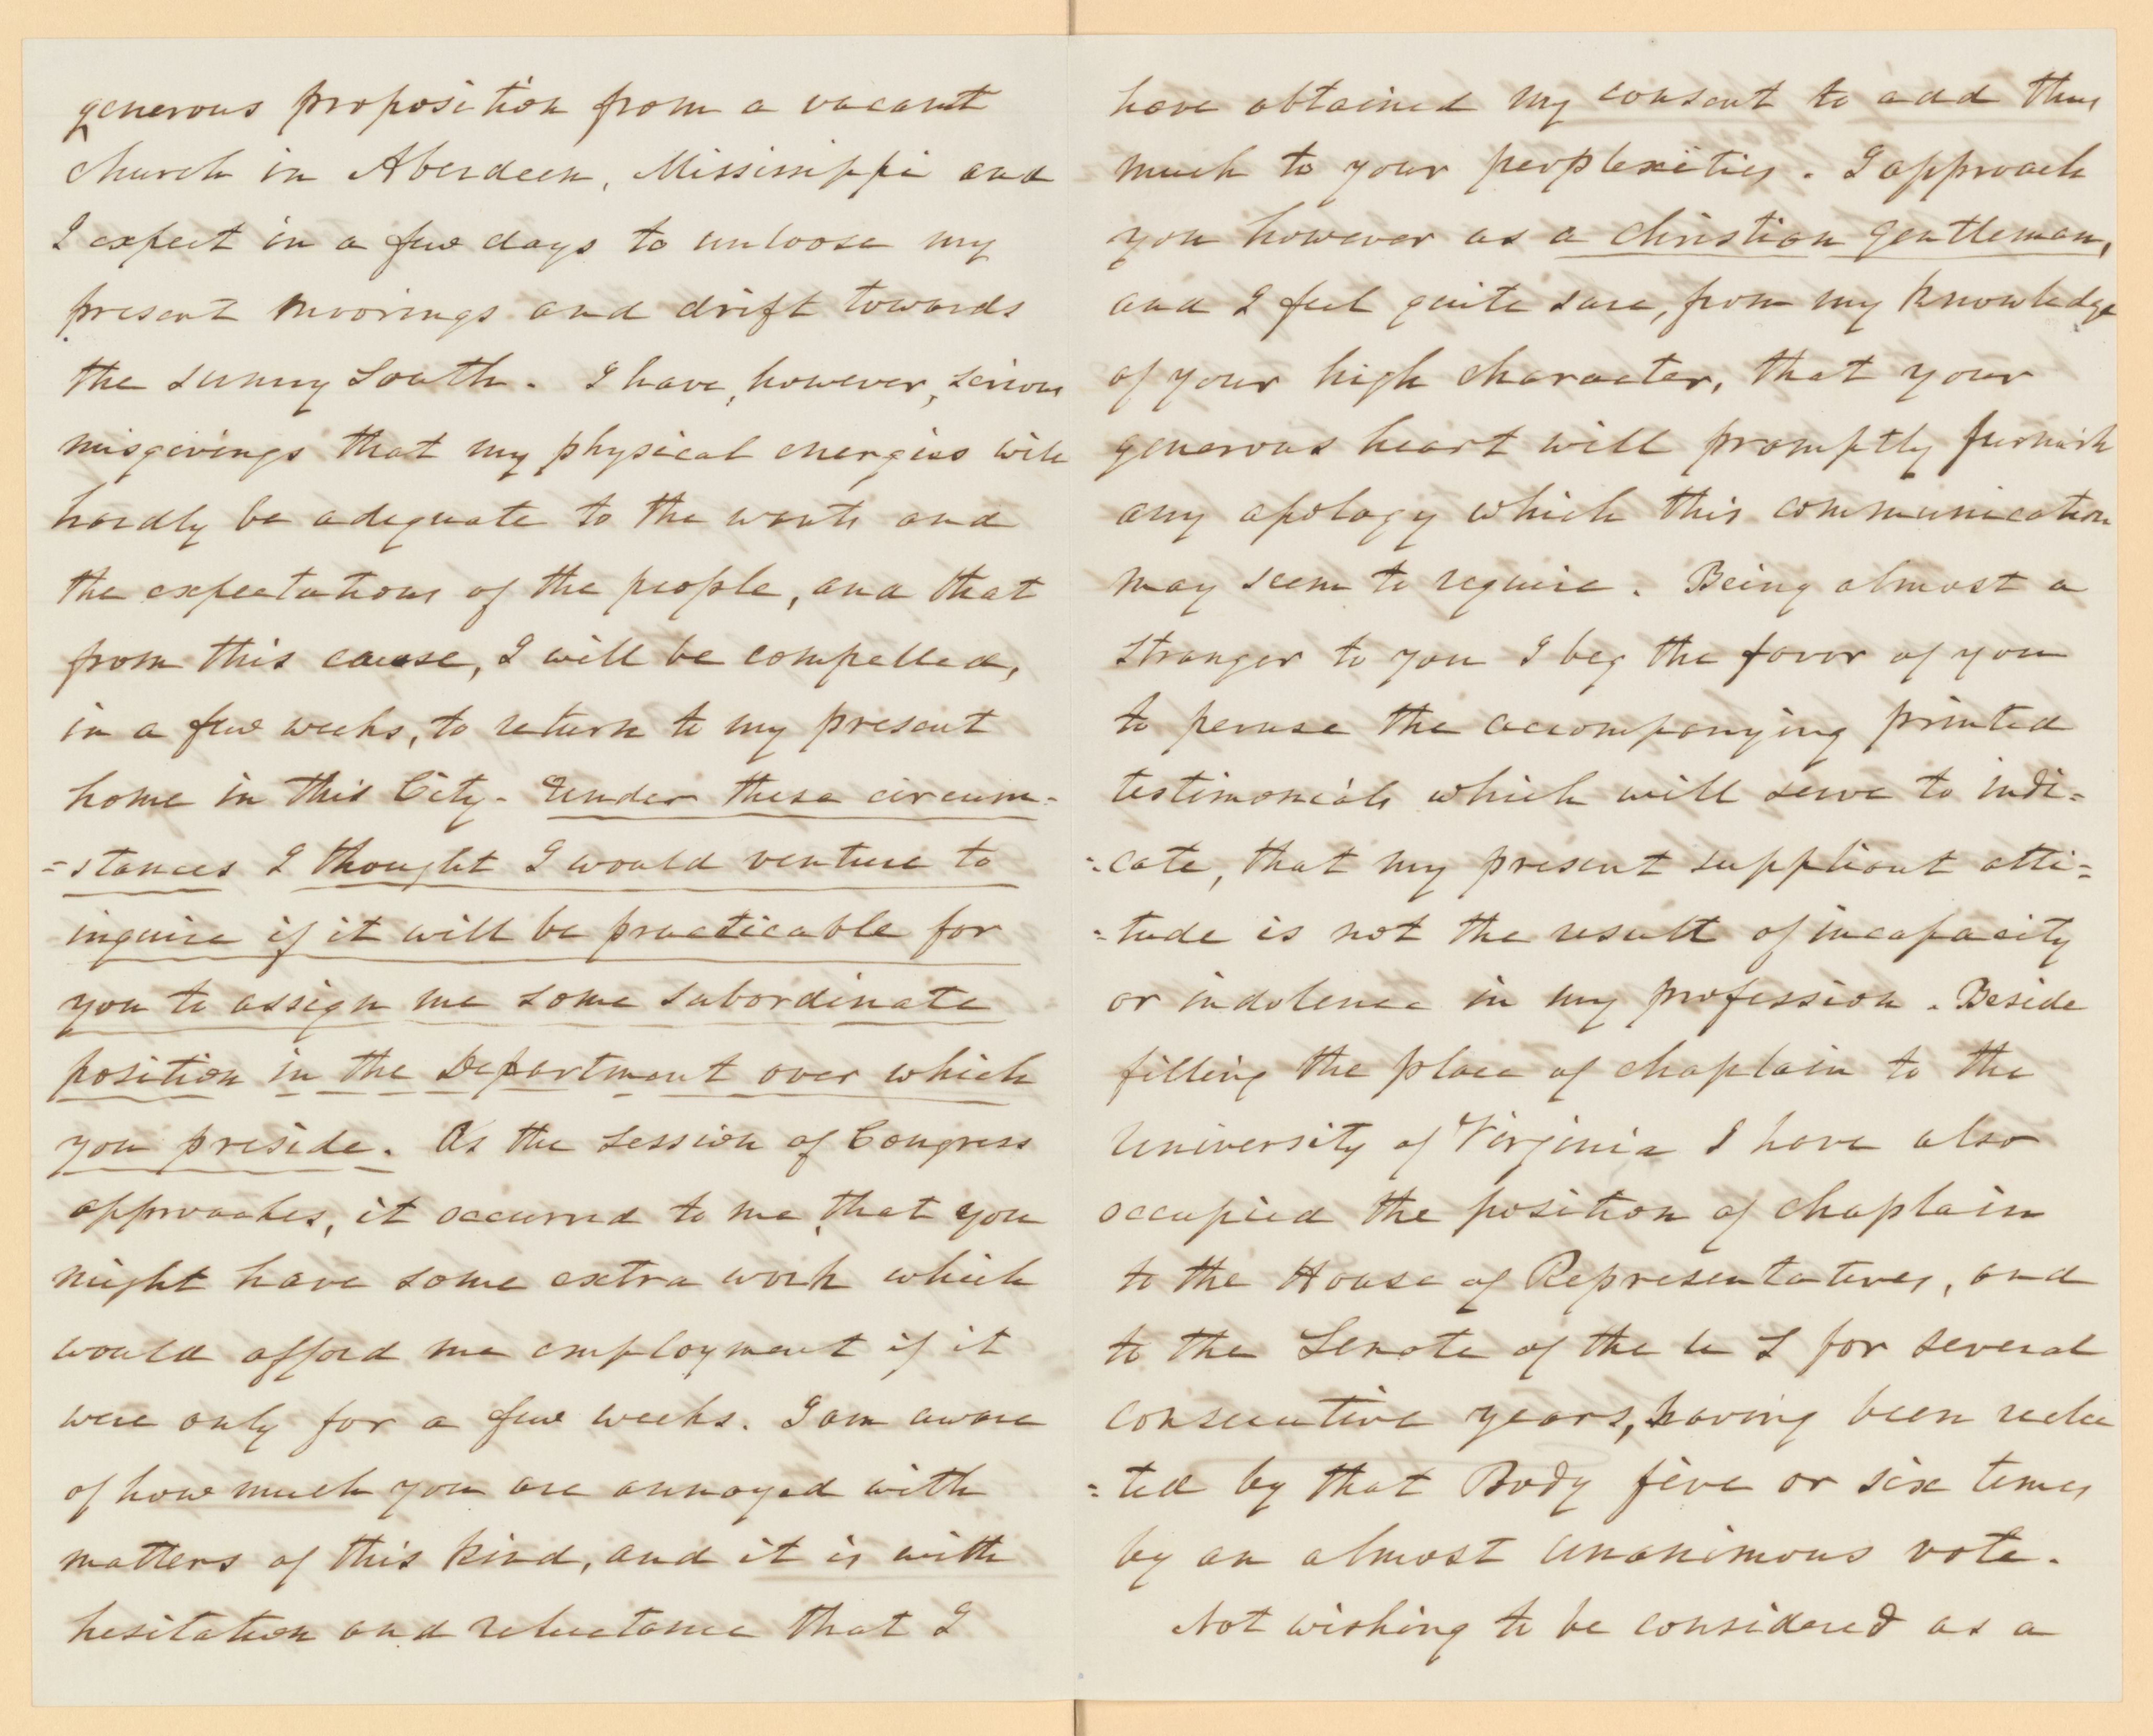 generous proposition from a vacant
church in Aberdeen, Mississippi and
I expect in a few days to unloose my
present moorings and drift towards
the sunny South. I have, however, serious
misgivings that my physical energies will
hardly be adequate to the wants and
the expectations of the people, and that
from this cause, I will be compelled,
in a few weeks, to return to my present
home in this City. Under these circum-
=stances I thought I would venture to
inquire if it will be practicable for
you to assign me some subordinate
position in the Department over which
you preside. As the session of Congress
approaches, it occurred to me, that you
might have some extra work which
would afford me employment if it
were only for a few weeks. I am aware
of how much you are annoyed with
matters of this kind, and it is with
hesitation and reluctance that I
have obtained my consent to add thus
much to your perplexities. I approach
you however as a christian gentleman,
and I feel quite sure, from my knowledge
of your high character, that your
generous heart will promptly furnish
any apology which this communication
may seem to require. Being almost a
stranger to you I beg the favor of you
to peruse the accompanying printed
testimonials which will serve to indi=
=cate, that my present suppliant atti=
=tude is not the result of incapacity
or indolence in my profession. Beside
filling the place of chaplain to the
University of Virginia I have also
occupied the position of chaplain
to the House of Representatives, and
to the Senate of the U S for several
consecutive years, having been reelec
=ted by that Body five or six times
by an almost unanimous vote.
Not wishing to be considered as a